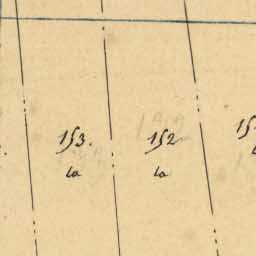 153. 152 15
la la